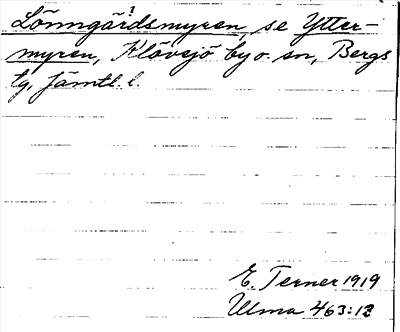 Lönngårdsmyren, se Ytter-
myren, Klövsjö by o. sn, Bergs
tg, Jämtl. l.
E. Terner 1919
Ulma 463:13